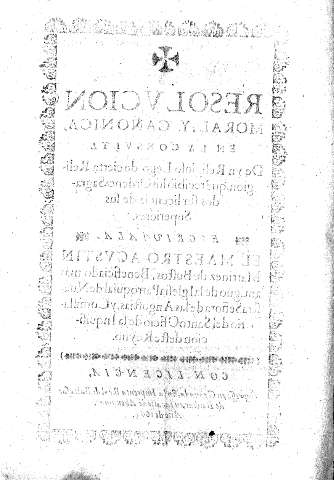 RESOLVCION
MORAL, Y CANONICA,
EN LA CONSVLTA
De vn Religioso Lego de cierta Reli-
gion, que recibió los Ordenes sagra-
dos sin licencia de los
Superiores.
ESCRIVIALA
EL MAESTRO AGVSTIN
Martinez de Bustos, Beneficiado mas
antiguo de la Iglesia Parroquial de Nue-
stra Señora de las Angustias, y Comissa-
rio del Santo Oficio de la Inquisi-
cion deste Reyno.
CON LICENCIA,
en Granada, En la Imprenta Real de